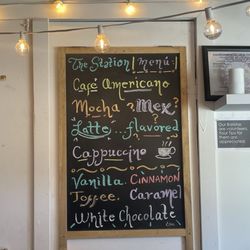 The Station | menú:
Café Americano
Mocha ? Mex?
Latte ...flavored
Cappuccino
Vanilla. CINNAMON
Toffee. Caramel
White Chocolate
Our Baristas
are volunteers.
Your Tips for
them are
appreciated!